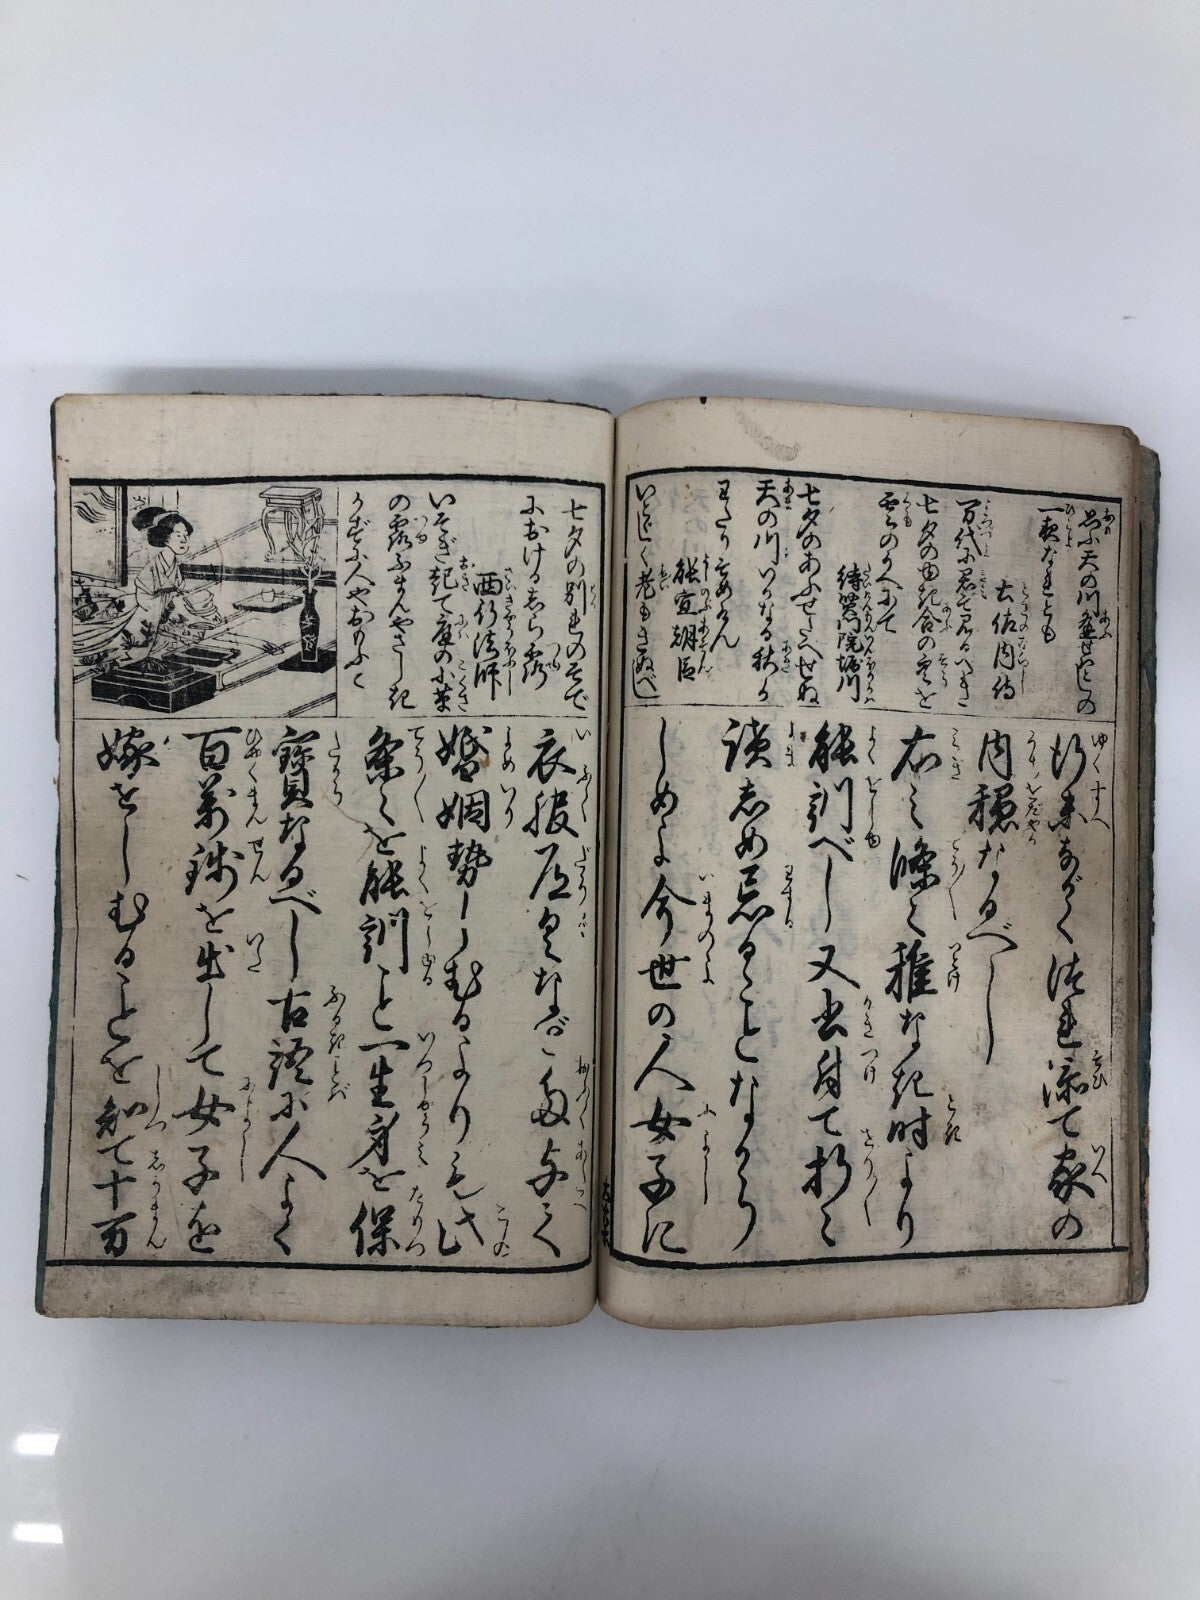 思ふ天の川逢せはこの
一夜なれとも
土佐内侍
万代に君そ見るへき
七夕の
雲のうへにて
待賢門院堀川
七夕のあふせたへせぬ
天の川いかなる秋か
わたりそめけん
能宣朝臣
いとゞしく
七夕の別れのそで
におけるしら露
西行法師
いそぎ起て庭の小草
の露ふまんやさしき
かずに人やおもふ
行末ながくつれ添て家の
内穏なるべし
右之條々稚なき時より
能訓べし又書付て折々
読しめ忘るゝことなから
しめよ今世の人女子に
衣服道具など多く与へて
婚姻せしむるよりも此
条々を能訓こと一生身を保
宝なるべし古語に人よく
百万銭を出して女子を
嫁せしむることを知て十万